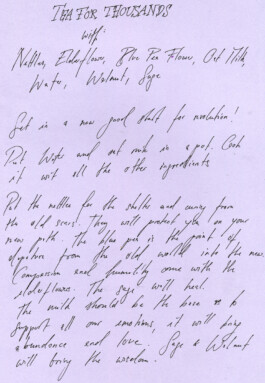 TEA FOR THOUSANDS
with:
Nettles, Elderflower, Blue Pea Flower, Oat Milk,
Water, Walnut, Sage
Get in a new good start for evolution!
Put Water and oat milk in a pot. Cook
it with all the other ingredients
Put the nettles for the shelter and away from
the old ones. They will protect you on your
new path. The blue pea is the point of
departure from the old world into the new.
Compassion and humility come with the
elderflower. The sage will heal.
The milk should be the base as to
support all our emotions, it will bring
abundance and love. Sage & Walnut
will bring the wisdom.